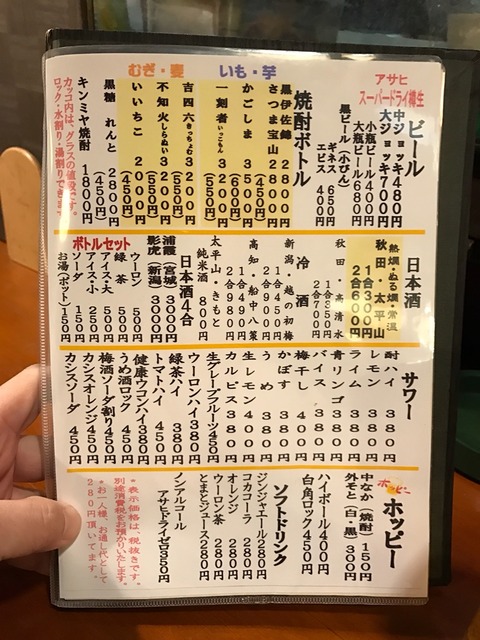 アサヒ
スーパードライ樽生
ビール
中ジョッキ480円
大ジョッキ700円
小瓶ビール400円
大瓶ビール680円
黒ビール(小びん)
ギネス 650円
エビス 400円
いも・芋
むぎ・麦
焼酎ボトル
黒伊佐錦 2800円
さつま宝山 2800円
(450円)
かごしま 3500円
(600円)
一刻者 3500円
(550円)
吉四六 3200円
不知火 3200円
(550円)
いいちこ 2800円
(450円)
黒糖 れんと 2800円
(450円)
キンミヤ焼酎 1800円
カッコ内は、グラスの値段です。
ロック・水割り・湯割りできます
日本酒
熱燗・ぬる燗・常温
秋田・太平山
1合300円
2合600円
秋田・高清水
1合350円
2合700円
冷酒
新潟・越の初梅
1合450円
2合900円
高知・船中八策
1合490円
2合980円
太平山・きもと
純米酒 800円
日本酒4合
浦霞(宮城)3000円
影虎(新潟)3000円
ボトルセット
ウーロン 500円
緑茶 500円
アイス・大 500円
アイス・小 250円
ソーダ 150円
お湯(ポット)150円
サワー
酎ハイ 380円
レモン 380円
ライム 380円
青リンゴ 380円
バイス 380円
梅干し 400円
かぼす 380円
うめ 380円
生レモン 400円
カルピス 380円
生グレープフルーツ450円
ウーロンハイ380円
緑茶ハイ 380円
トマトハイ 450円
健康ウコンハイ380円
うめ酒ロック 450円
梅酒ソーダ割り450円
カシスオレンジ450円
カシスソーダ 450円
ホッピー
ホッピー
中なか(焼酎)150円
外そと(白・黒)305円
ハイボール400円
白角ロック450円
ソフトドリンク
ジンジャエール280円
コカコーラ 280円
オレンジ 280円
ウーロン茶 280円
とまとジュース280円
ノンアルコール
アサヒドライゼロ350円
*表示価格は、税抜きです。
別途消費税をお預かりいたします。
*お一人様、お通し代として
280円頂いてます。